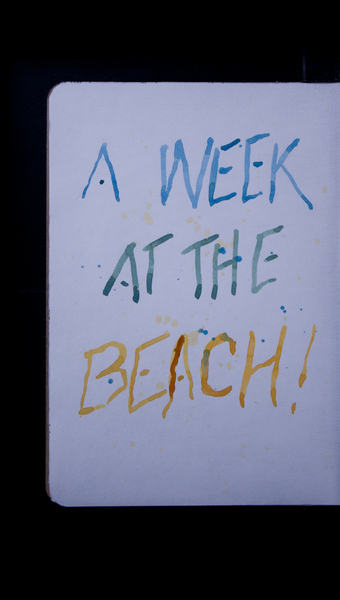 A WEEK
AT THE
BEACH!